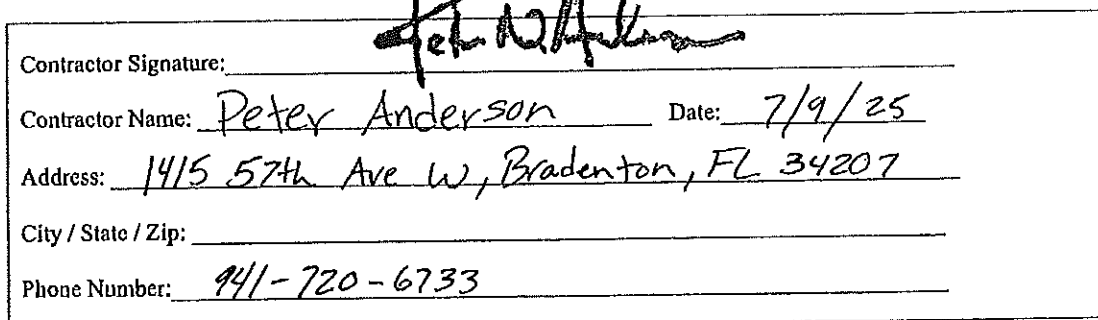 Contractor Signature:
Contractor Name: Peter Anderson Date: 7/9/25
Address: 1415 57th Ave W, Bradenton, FL 34207
City / State / Zip:
Phone Number: 941-720-6733